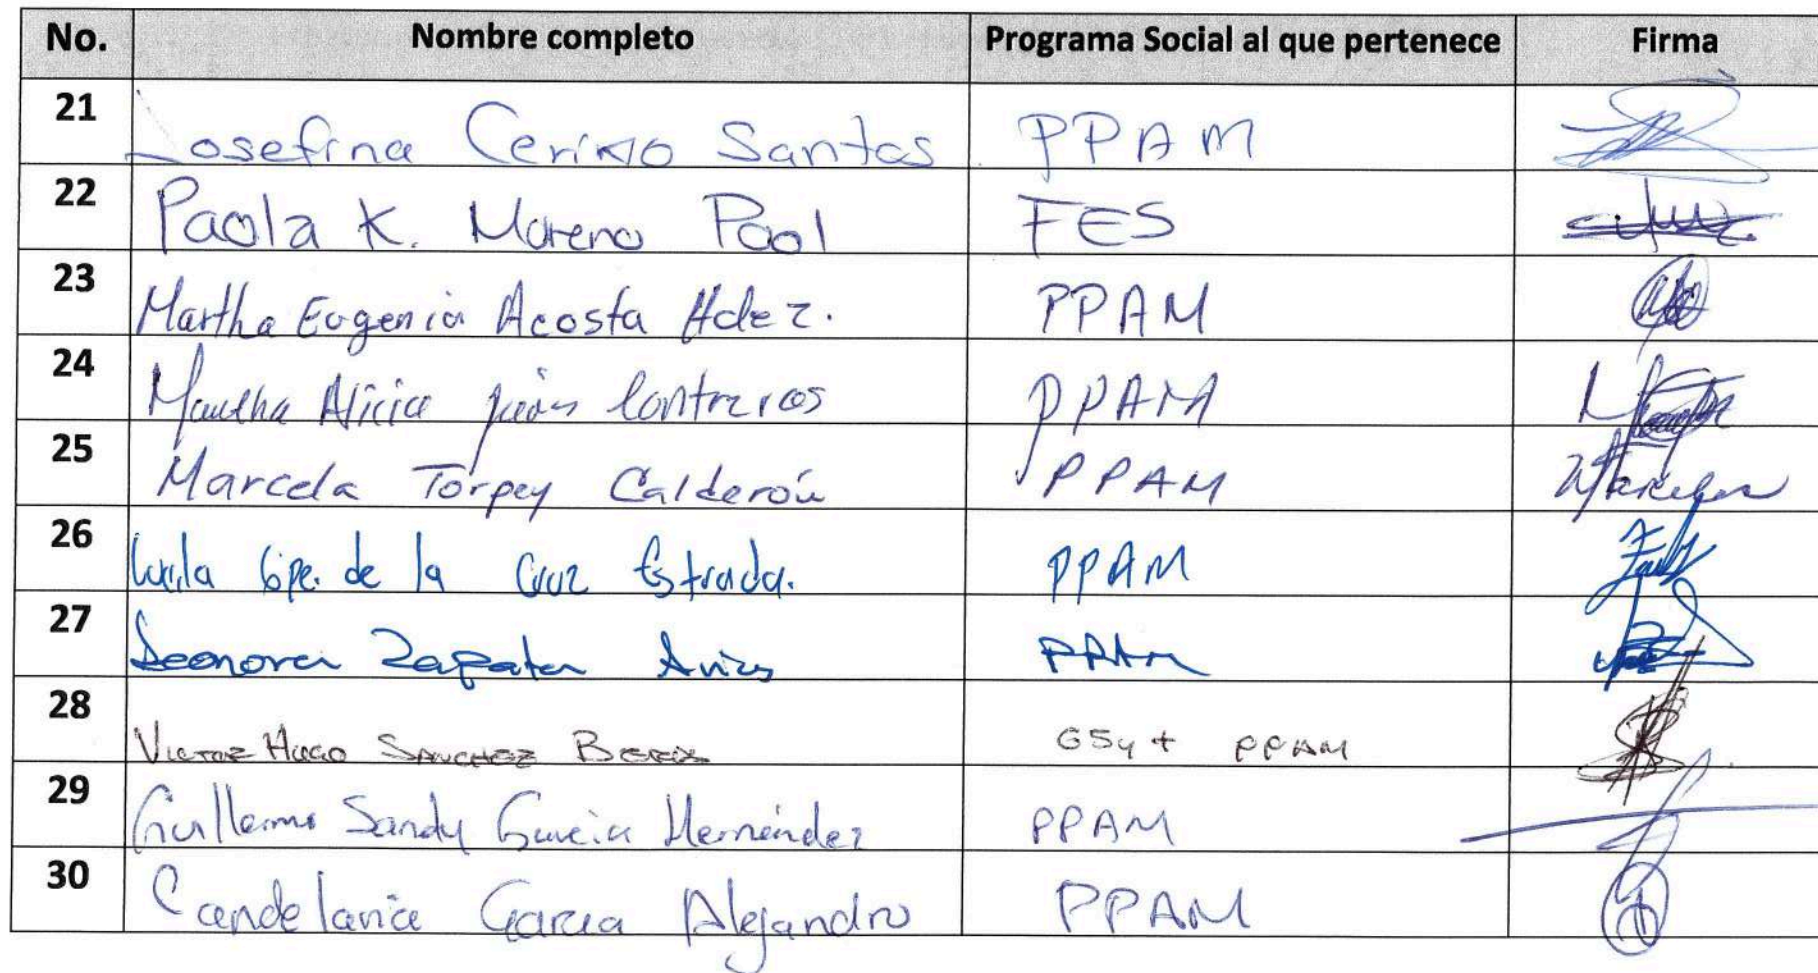 No. Nombre completo Programa Social al que pertenece Firma
21 Josefina Santos PPAM
22 Paola K. Moreno Pool FES
23 Martha Eugenia Acosta Hdez. PPAM
24 Martha Alicia Contreras PPAM
25 Marcela Torpey Calderón PPAM Marcela
26 Lucila Gpe. de la Cruz Estrada. PPAM
27 Leonora Zapata PPAM
28 Victor Hugo Sanchez 65y+ PPAM
29 Guillermo Sandy Garcia Hernández PPAM
30 Candelaria Garcia Alejandro PPAM